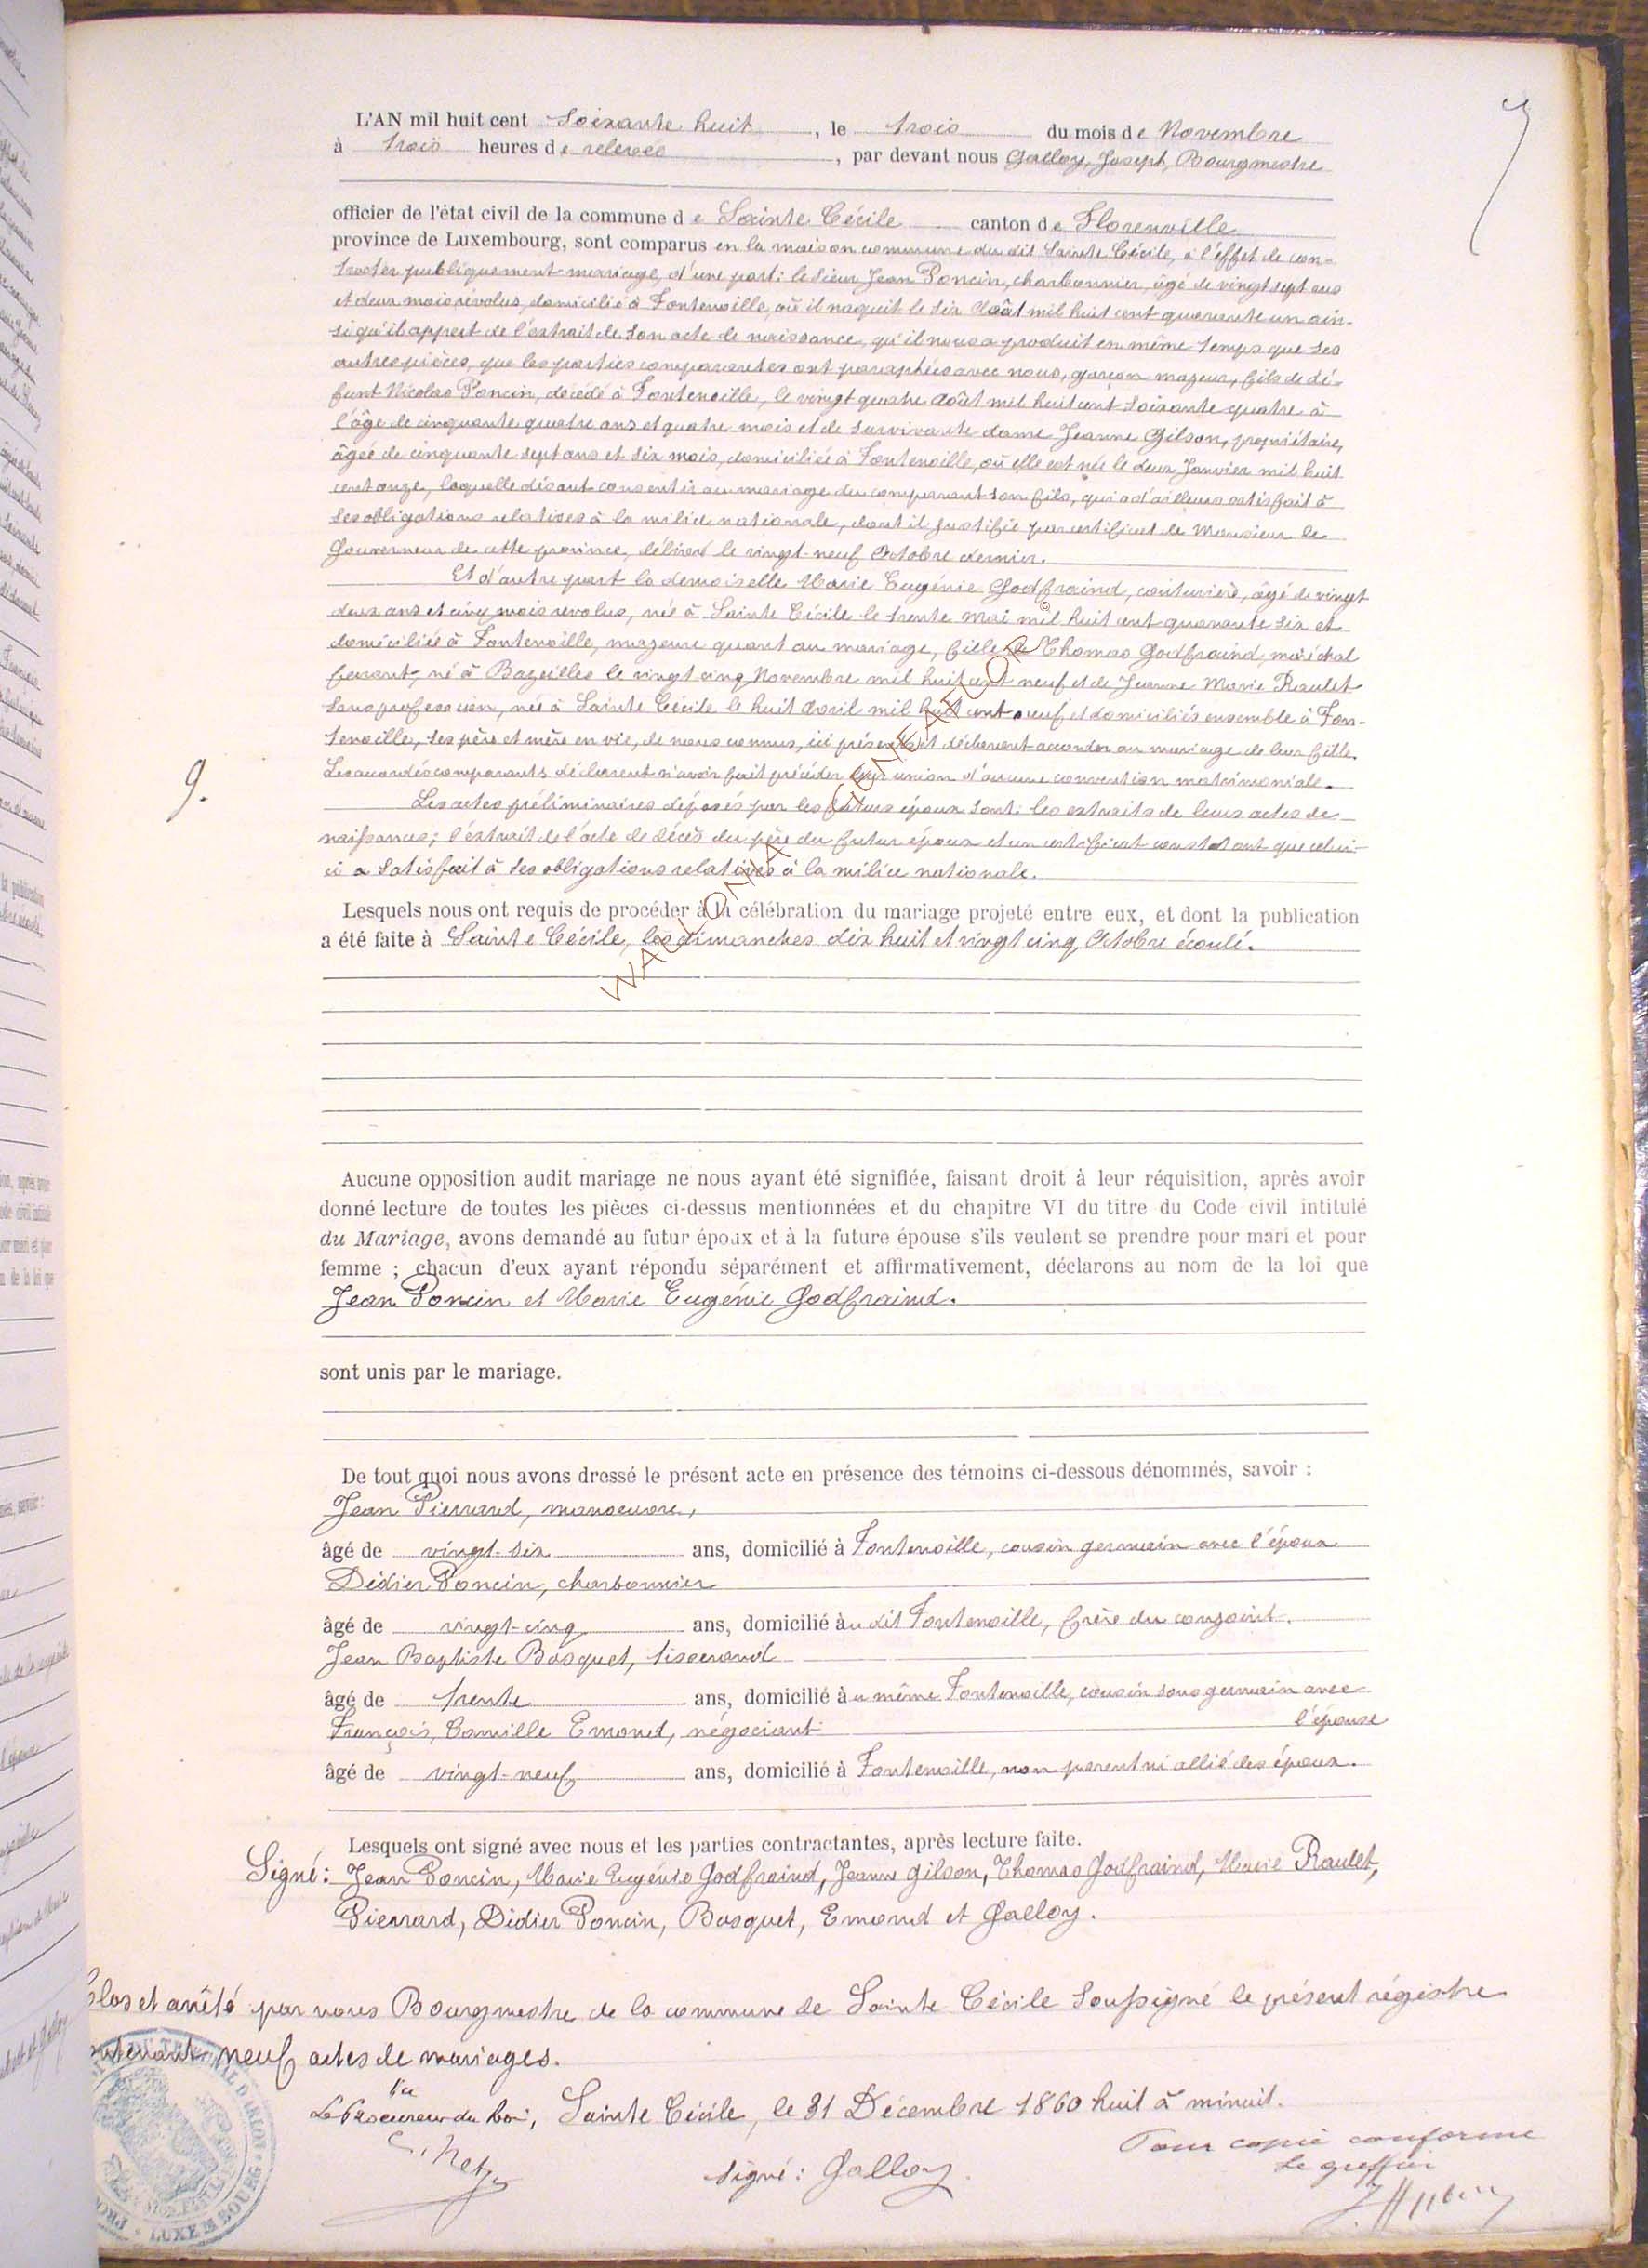 7
L'AN mil huit cent Soixante huit, le trois du mois de Novembre
à trois heures de relevée, par devant nous Galloy, Joseph, Bourgmestre
officier de l'état civil de la commune de Sainte Cécile canton de Florenville
province de Luxembourg, sont comparus en la maison commune du dit Sainte Cécile, à l'effet de con-
tracter publiquement mariage, d'une part: le sieur Jean Poncin, charbonnier, âgé de vingt sept ans
et deux mois révolus, domicilié à Fontenoille, où il naquit le six Août mil huit cent quarante un ain-
si qu'il appert de l'extrait de son acte de naissance, qu'il nous a produit en même temps que ses
autres pièces, que les parties comparantes ont paraphées avec nous, garçon majeur, fils de dé-
funt Nicolas Poncin, décédé à Fontenoille, le vingt quatre Août mil huit cent soixante quatre à
l'âge de cinquante quatre ans et quatre mois et de survivante dame Jeanne Gilson, propriétaire,
âgée de cinquante sept ans et six mois, domiciliée à Fontenoille, où elle est née le deux Janvier mil huit
cent onze, laquelle disant consentir au mariage du comparant son fils, qui a d'ailleurs satisfait à
ses obligations relatives à la milice nationale, dont il justifie par certificat de Monsieur le
Gouverneur de cette province, délivré le vingt-neuf Octobre dernier.
Et d'autre part la demoiselle Marie Eugénie Godfraind, couturière, âgé de vingt
deux ans et cinq mois revolus, née à Sainte Cécile le trente Mai mil huit cent quarante six et
domiciliée à Fontenoille, majeure quant au mariage, fille de Thomas Godfraind, maréchal
ferrant, né à Bazeilles le vingt cinq Novembre mil huit cent neuf et de Jeanne Marie Raulet
sans profession, née à Sainte Cécile le huit Avril mil huit cent neuf et domiciliés ensemble à Fon-
tenoille, ses père et mère en vie, de nous connus, ici présents et déclarent accorder au mariage de leur fille.
Les accordés comparants déclarent n'avoir fait précéder leur union d'aucune convention matrimoniale.
9.
Les actes préliminaires déposés par les futurs époux sont: les extraits de leurs actes de
naissances; l'extrait de l'acte de décès du père du futur époux et un certificat constatant que celui-
ci a satisfait à ses obligations relatives à la milice nationale.
WALLONIA GENEALOGY
Lesquels nous ont requis de procéder à la célébration du mariage projeté entre eux, et dont la publication
a été faite à Sainte Cécile, les dimanches dix huit et vingt cinq Octobre écoulé.
Aucune opposition audit mariage ne nous ayant été signifiée, faisant droit à leur réquisition, après avoir
donné lecture de toutes les pièces ci-dessus mentionnées et du chapitre VI du titre du Code civil intitulé
du Mariage, avons demandé au futur époux et à la future épouse s'ils veulent se prendre pour mari et pour
femme ; chacun d'eux ayant répondu séparément et affirmativement, déclarons au nom de la loi que
Jean Poncin et Marie Eugénie Godfraind.
sont unis par le mariage.
De tout quoi nous avons dressé le présent acte en présence des témoins ci-dessous dénommés, savoir :
Jean Pierrard, manoeuvre,
âgé de vingt-six ans, domicilié à Fontenoille, cousin germain avec l'époux
Didier Poncin, charbonnier
âgé de vingt-cinq ans, domicilié àu dit Fontenoille, frère du conjoint.
Jean Baptiste Bosquet, tisserand
âgé de trente ans, domicilié àu même Fontenoille, cousin sous germain avec
François, Camille Emond, négociant l'épouse
âgé de vingt-neuf ans, domicilié à Fontenoille, non parent ni allié des époux.
Lesquels ont signé avec nous et les parties contractantes, après lecture faite.
Signé: Jean Poncin, Marie Eugénie Godfraind, Jeanne Gilson, Thomas Godfraind, Marie Raulet,
Pierrard, Didier Poncin, Bosquet, Emond et Galloy.
Clos et arrêté par nous Bourgmestre de la commune de Sainte Cécile soussigné le présent régistre
contenant neuf actes de mariages.
Vu
Le Procureur du Roi, Sainte Cécile, le 31 Décembre 1860 huit à minuit.
Pour copie conforme
Le greffier
signé: Galloy
LUXEMBOURG